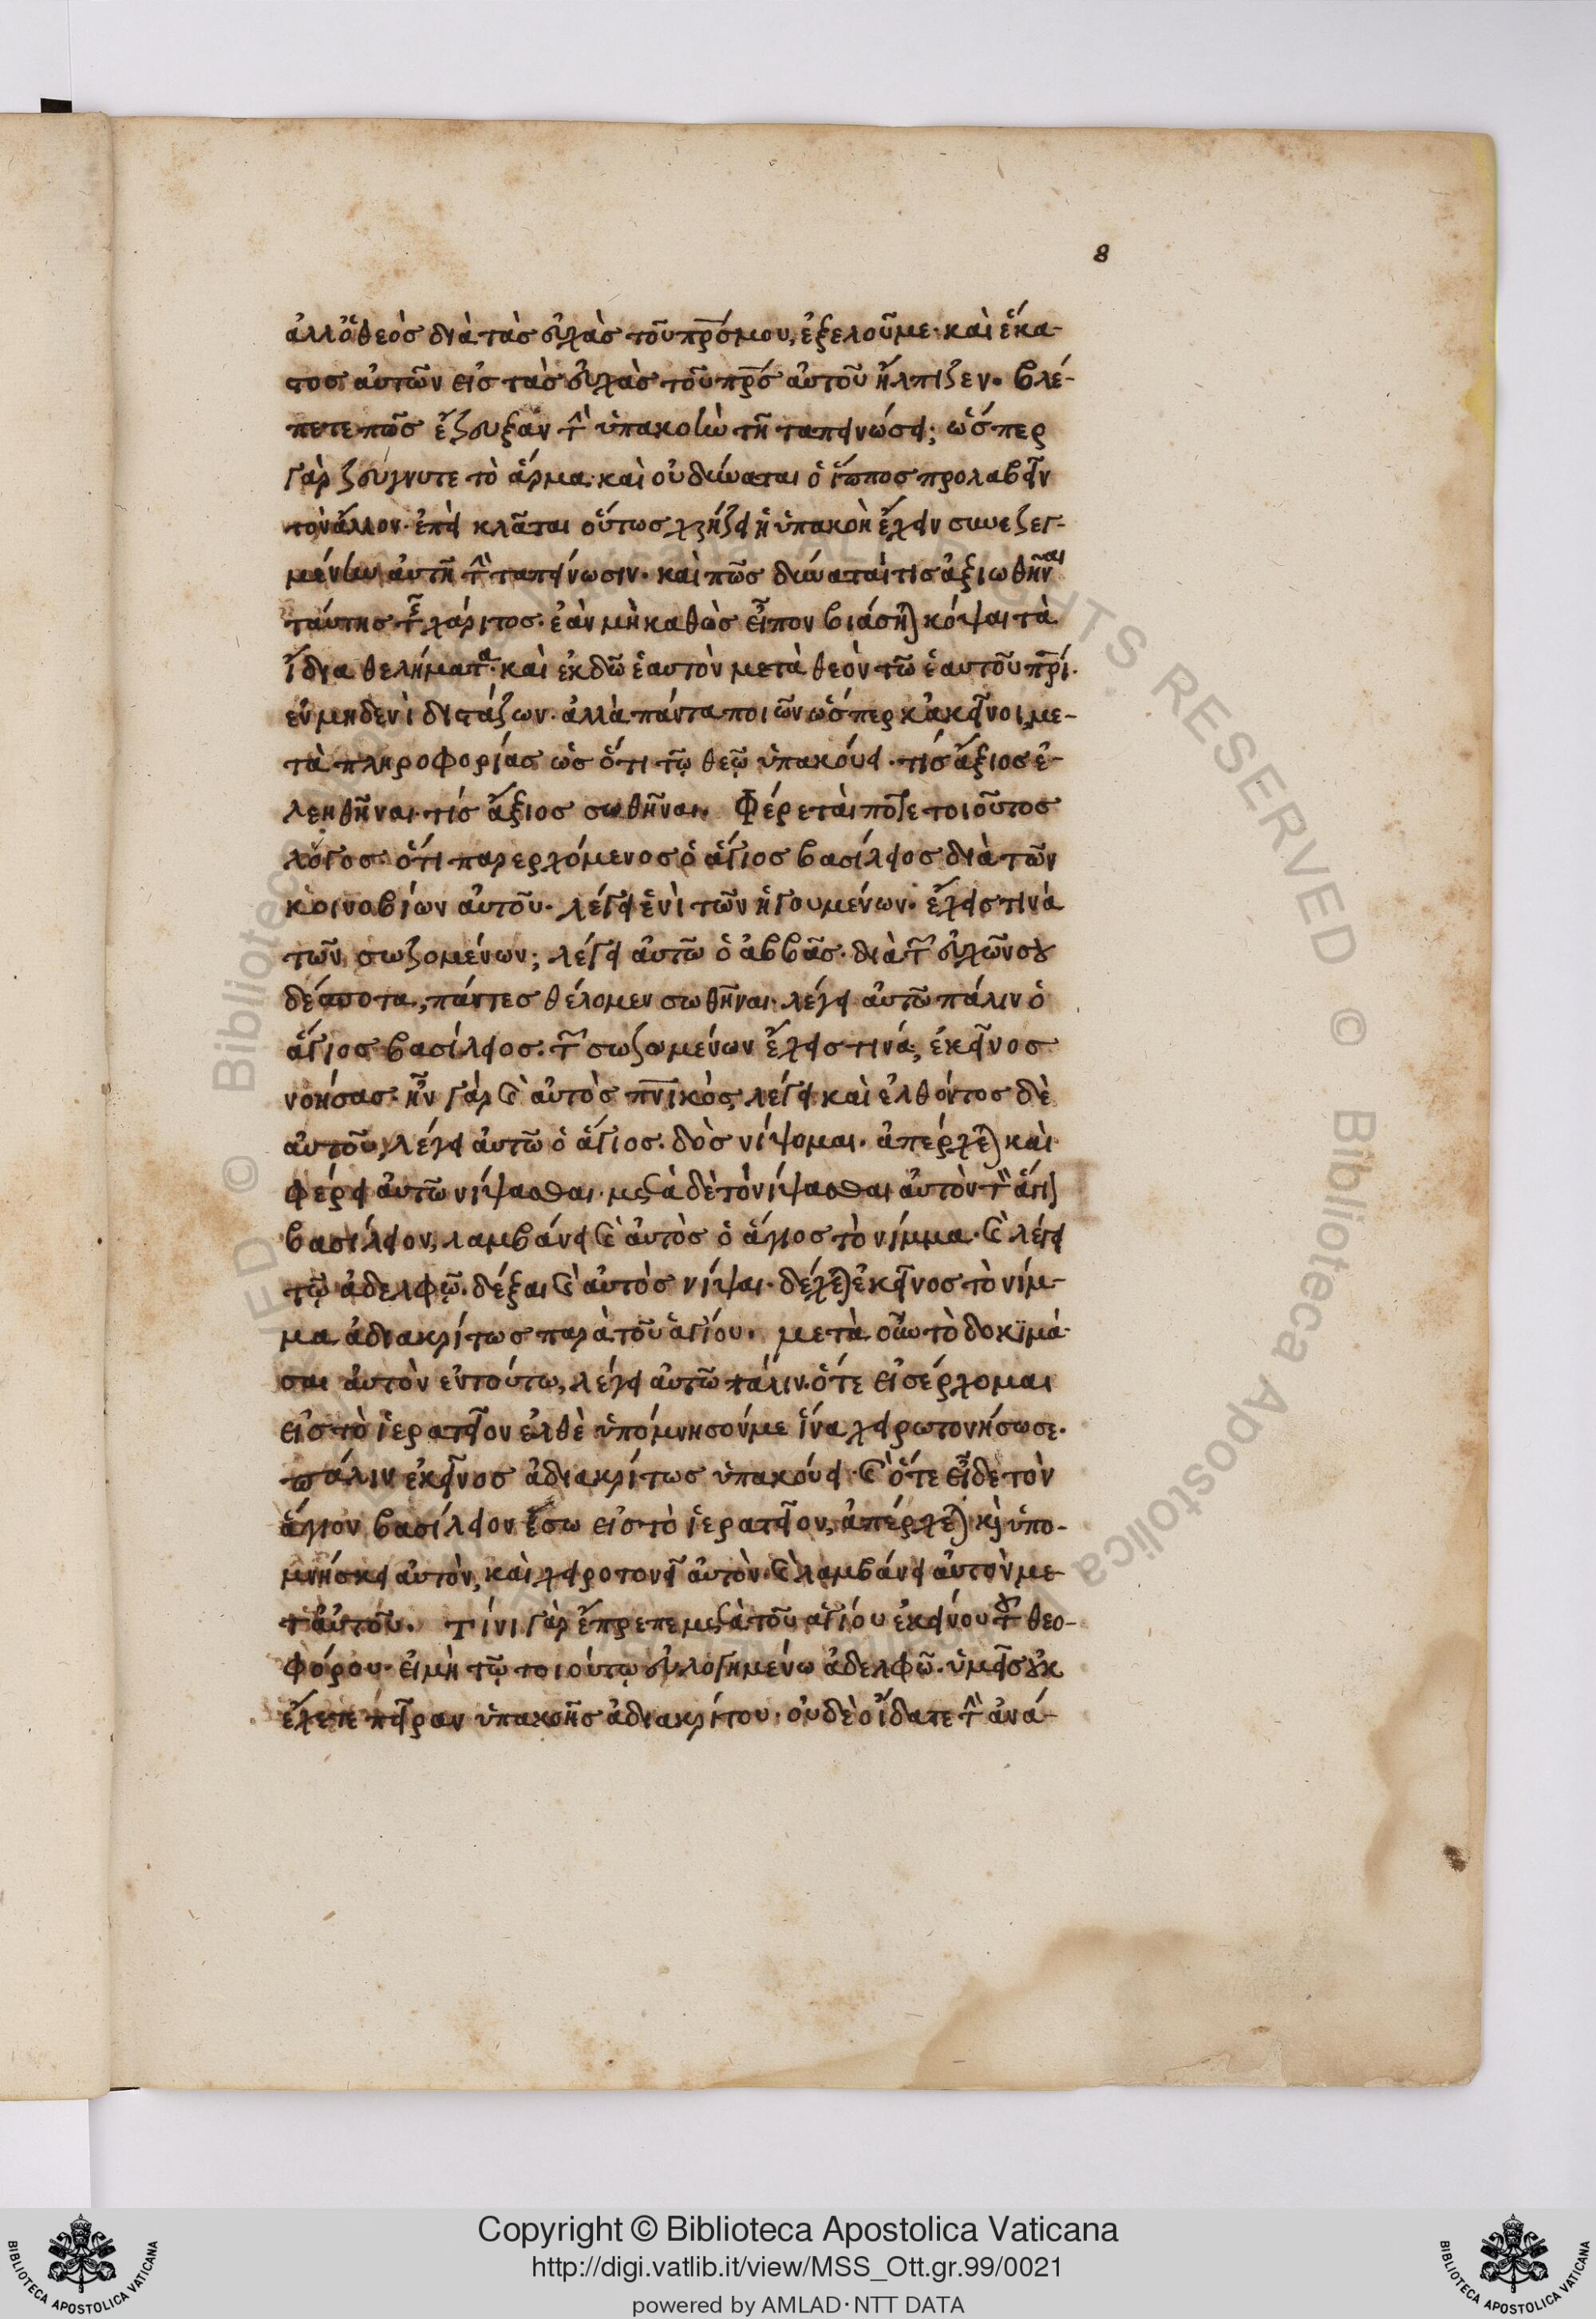 8
ἀλλ' ὁ θεὸς διὰ τὰς εὐχὰς τοῦ πρσ μου, ἐξελοῦμε· καὶ ἕκα-
στος αὐτῶν εἰς τὰς εὐχὰς τοῦ πρσ αὐτοῦ ἤλπιζεν. βλέ-
πετε πῶς ἔζευξαν τὴν ὑπακοὴν τῆ ταπεινώσει; ὥσπερ
γὰρ ζεύγνυτε τὸ ἅρμα· καὶ οὐ δύναται ὁ ἵππος προλαβεῖν
τὸν ἄλλον· ἐπεὶ κλᾶται οὕτως χρήζει ἡ ὑπακοὴ ἔχειν συνεζεγ-
μένην αὐτῆ τὴν ταπείνωσιν. καὶ πῶς δύναταί τις ἀξιωθῆναι
ταύτης τῆς χάριτος· ἐὰν μὴ καθὼς εἶπον βιάσηται κόψαι τὰ
ἴδια θελήματα· καὶ ἐκδῶ ἑαυτὸν μετὰ θεὸν τῶ ἑαυτοῦ πρι·
ἐν μηδενὶ διστάζων· ἀλλὰ πάντα ποιῶν ὥσπερ κἀκεῖνοι, με-
τὰ πληροφορίας ὡς ὅτι τῷ θεῷ ὑπακούει· τίς ἄξιος ἐ-
λεηθῆναι· τίς ἄξιος σωθῆναι. Φέρεταί ποτε τοιοῦτος
λόγος· ὅτι παρερχόμενος ὁ ἅγιος βασίλειος διὰ τῶν
κοινοβίων αὐτοῦ· λέγει ἑνὶ τῶν ἡγουμένων· ἔχεις τινά
τῶν σωζομένων; λέγει αὐτῶ ὁ ἀββᾶς· διὰ τῶν εὐχῶν σου
δέσποτα, πάντες θέλομεν σωθῆναι· λέγει αὐτῶ πάλιν ὁ
ἅγιος βασίλειος· τῶν σωζομένων ἔχεις τινά; ἐκεῖνος
νοήσας· ἦν γὰρ καὶ αὐτὸς πνικὸς, λέγει· καὶ ἐλθόντος δὲ
αὐτοῦ, λέγει αὐτῶ ὁ ἅγιος· δὸς νίψομαι· ἀπέρχεται καὶ
φέρει αὐτῶ νίψασθαι· μετὰ δὲ τὸ νίψασθαι αὐτὸν τὸν ἅγιον
βασίλειον, λαμβάνει καὶ αὐτὸς ὁ ἅγιος τὸ νίμμα· καὶ λέγει
τῷ ἀδελφῷ· δέξαι καὶ αὐτὸς νίψαι· δέχεται ἐκεῖνος τὸ νίμ-
μα ἀδιακρίτως παρὰ τοῦ ἁγίου. μετὰ οὖν τὸ δοκϊμά-
σαι αὐτὸν ἐν τούτω, λέγει αὐτῶ πάλιν· ὅτε εἰσέρχομαι
εἰς τὸ ἱερατεῖον ἐλθὲ ὑπόμνησόν με ἵνα χειρωτονήσω σε·
πάλιν ἐκεῖνος ἀδιακρίτως ὑπακούει· καὶ ὅτε εἶδε τὸν
ἅγιον βασίλειον ἔσω εἰς τὸ ἱερατεῖον, ἀπέρχεται καὶ ὑπο-
μνήσκει αὐτὸν, καὶ χειροτονεῖ αὐτὸν· καὶ λαμβάνει αὐτὸν με-
τ' αὐτοῦ. Τίνι γὰρ ἔπρεπε μετὰ τοῦ ἁγίου ἐκείνου τοῦ θεο-
φόρου· εἰ μὴ τῷ τοιούτῳ εὐλογημένω ἀδελφῶ· ὑμεῖς οὐκ
ἔχετε πεῖραν ὑπακοῆς ἀδιακρίτου· οὐδὲ οἴδατε τὴν ἀνά-
Copyright © Biblioteca Apostolica Vaticana
http://digi.vatlib.it/view/MSS_Ott.gr.99/0021
powered by AMLAD·NTT DATA